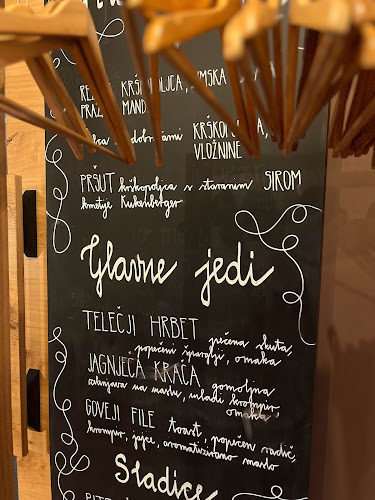 KRŠKOPOLJCA, ZIMSKA
PRAŽ MAND
KRŠKOPOLJCA,
VLOŽNINE
PRŠUT krškopoljca s staranim SIROM
kmetije Kukenberger
Glavne jedi
TELEČJI HRBET pečena skuta,
popečeni šparglji, omaka
JAGNJEČA KRAČA gomoljna
zelenjava na maslu, mladi krompir,
omaka
GOVEJI FILE toast, popečen radič,
krompir, jajce, aromatizirano maslo
Sladice